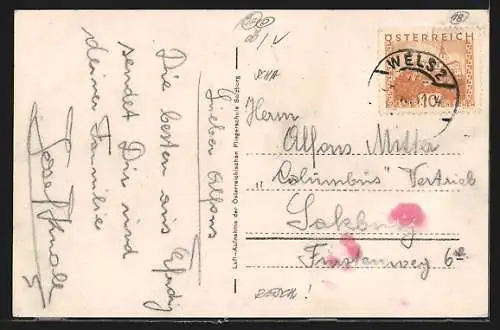 Lieber Alfons
Die besten aus Eferding
sendet Dir und
deiner Familie
Josef
Luft-Aufnahme der Österreichischen Fliegerschule Salzburg
ÖSTERREICH
WELS 2
10
Herrn
Alfons Mitter
"Columbus" Vertrieb
Salzburg
Fürstenweg 6
BESCH!